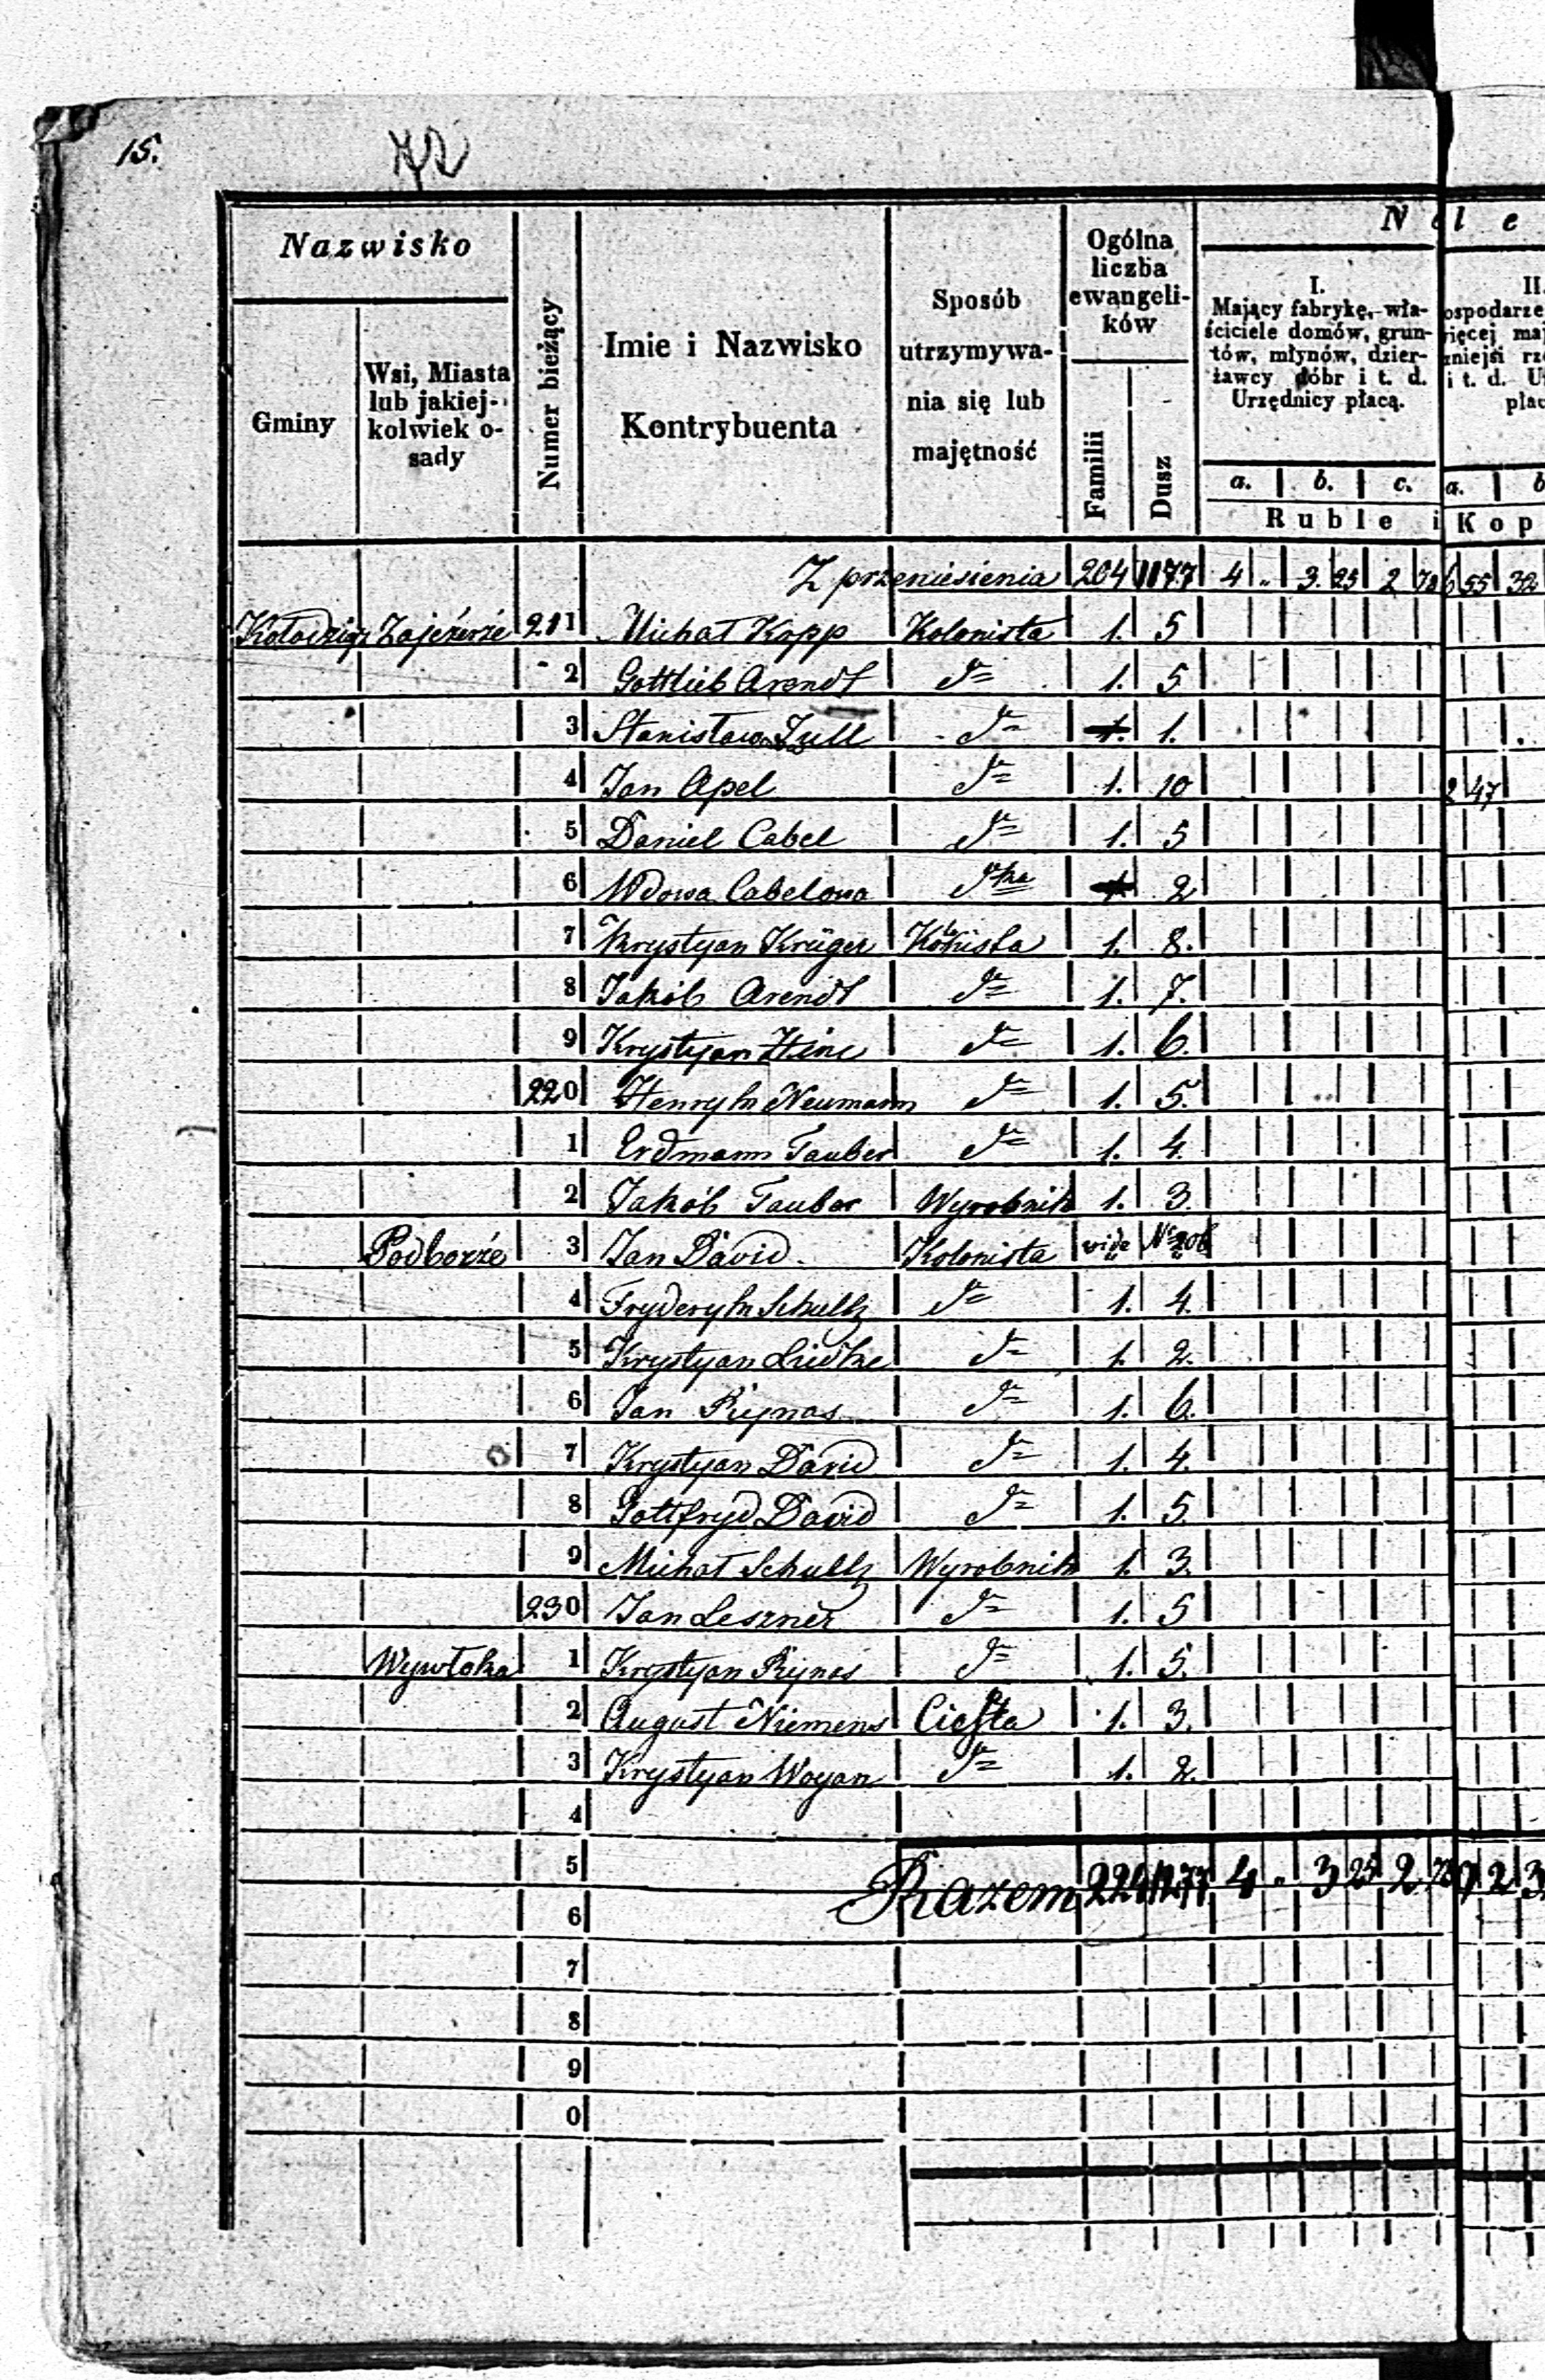 15.
Nazwisko
Gminy
Wsi, Miasta lub jakiej- kolwiek o- sady
Numer bieżący
Imie i Nazwisko Kontrybuenta
Sposób utrzymywa- nia się lub majętność
Ogólna liczba ewangeli- ków
Familii
Dusz
N a l e
I. Mający fabrykę, wła- ściciele domów, grun- tów, młynów, dzier- żawcy dóbr i t. d. Urzędnicy płacą.
II. ospodarze ięcej maj zniejsi rz i t. d. U plac
a. b. c. a. b
Ruble i Kop
Z przeniesienia 204 1177 4 „ 3. 25 2 78 6 55 32
Zajezierze 211 Michał Kopp Kolonista 1. 5
2 Gottlieb Arendt dto 1. 5
3 Stanisław Zull dto 1. 1.
4 Jan Apel dto 1. 10 2 47
5 Daniel Cabel dto 1. 5
6 Wdowa Cabelowa dtka 1 2
7 Krystyan Krüger Kolonista 1. 8.
8 Jakób Arendt dto 1. 7.
9 Krystyan Hinc dto 1. 6.
220 Henryk Neumann dto 1. 5.
1 Erdmann Tauber dto 1. 4.
2 Jakób Tauber Wyrobnik 1. 3.
Podborze 3 Jan David. Kolonista vide No 206
4 Fryderyk Schultz dto 1. 4.
5 Krystyan Liedke dto 1. 2.
6 Jan Rynas dto 1. 6.
7 Krystyan David dto 1. 4.
8 Gottfryd David dto 1. 5.
9 Michał Schultz Wyrobnik 1. 3.
230 Jan Leszner dto 1. 5
Wywłoka 1 Krystyan Rynas dto 1. 5.
2 August Niemens Cieśla 1. 3.
3 Krystyan Woyan dto 1. 2.
4
5 Razem 224 1277 4 „ 3 25 2 78 9 2 3
6
7
8
9
0